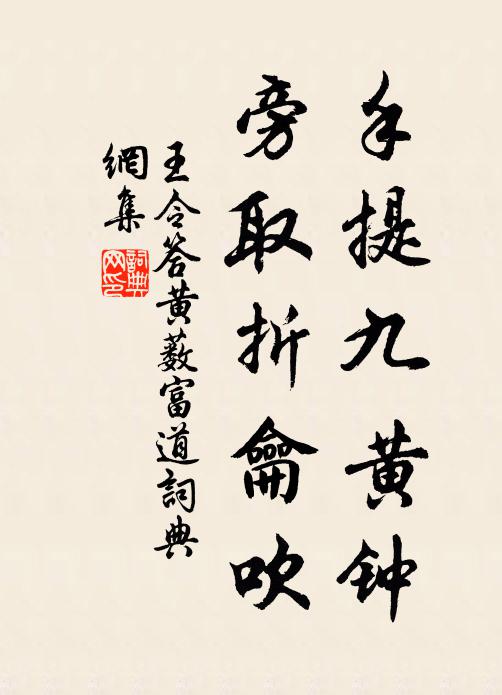 手提九黄钟
旁取折龠吹
王令答黄薮富道詞典
網集
詞典网印